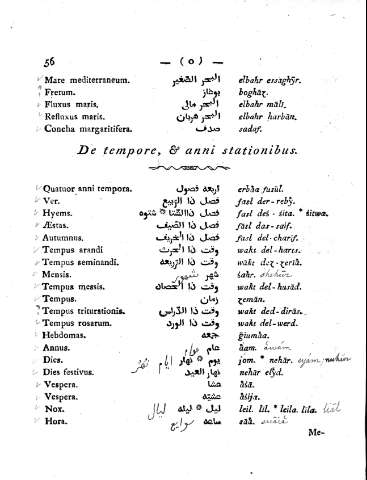 56 — ( o ) —
Mare mediterraneum. البحر الصغير elbahr essaghÿr.
Fretum. بوغاز boghāz.
Fluxus maris. البحر مالي elbahr māli.
Refluxus maris. البحر هربان elbahr harbān.
Concha margaritifera. صدف sadaf.
De tempore, & anni stationibus.
Quatuor anni tempora. اربعه فصول erbħa fusūl.
Ver. فصل ذا الربيع fasl der-rebÿ.
Hyems. فصل ذا الشتا * شتوه fasl deś-śita. * śitwa.
Æstas. فصل ذا الصيف fasl das-saif.
Autumnus. فصل ذا الخريف fasl del-charif.
Tempus arandi وقت ذا الحرث wakt del-hares.
Tempus seminandi. وقت ذا الزريعه wakt dez-zeriā.
Mensis. شهر شهور śahr.
Tempus messis. وقت ذا الحصاد wakt del-husād.
Tempus. زمان zemān.
Tempus triturationis. وقت ذا الدراس wakt ded-dirās.
Tempus rosarum. وقت ذا الورد wakt del-werd.
Hebdomas. جمعه ğiumħa.
Annus. عام āam. awām
Dies. يوم * نهار ايام jom. * nehār. eyām
Dies festivus. نهار العيد nehār elÿd.
Vespera. عشا āśā.
Vespera. عشيه āśija.
Nox. ليل * ليله ليال leil. lil. * leila. lila.
Hora. ساعه سوايع saā.
Me-